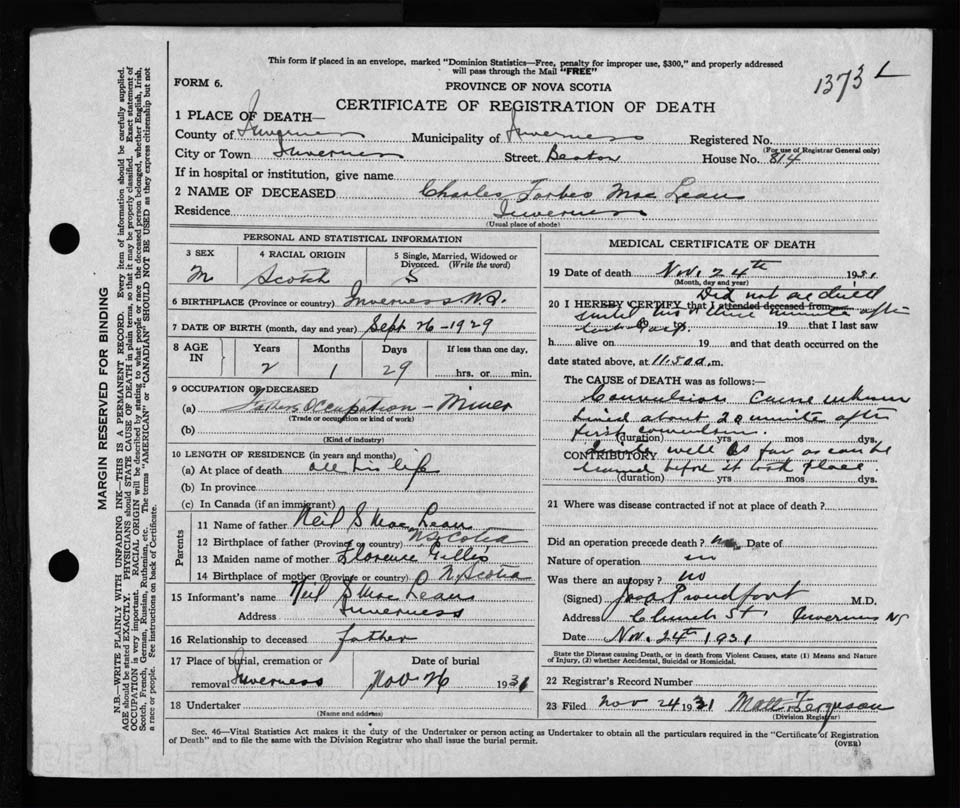 This form if placed in an envelope, marked "Dominion Statistics—Free, penalty for improper use, $300," and properly addressed
will pass through the Mail "FREE"
1373 L
FORM 6.
PROVINCE OF NOVA SCOTIA
CERTIFICATE OF REGISTRATION OF DEATH
1 PLACE OF DEATH—
County of Inverness Municipality of Inverness Registered No.
(For use of Registrar General only)
City or Town Inverness Street Beaton House No. 814
If in hospital or institution, give name
2 NAME OF DECEASED Charles Forbes Mac Lean
Residence Inverness
(Usual place of abode)
PERSONAL AND STATISTICAL INFORMATION
3 SEX 4 RACIAL ORIGIN 5 Single, Married, Widowed or Divorced. (Write the word)
M Scotch S
6 BIRTHPLACE (Province or country) Inverness N.S.
7 DATE OF BIRTH (month, day and year) Sept 26-1929
8 AGE IN Years Months Days If less than one day,
2 1 29 hrs. or min.
9 OCCUPATION OF DECEASED
(a) Fathers Occupation - Miner
(Trade or occupation or kind of work)
(b)
(Kind of industry)
10 LENGTH OF RESIDENCE (in years and months)
(a) At place of death all his life
(b) In province
(c) In Canada (if an immigrant)
Parents
11 Name of father Neil S Mac Lean
12 Birthplace of father (Province or country) N Scotia
13 Maiden name of mother Florence Gillis
14 Birthplace of mother (Province or country) N Scotia
15 Informant's name Neil S Mac Lean
Address Inverness
16 Relationship to deceased father
17 Place of burial, cremation or removal Inverness Date of burial Nov 26 1931
18 Undertaker
(Name and address)
MEDICAL CERTIFICATE OF DEATH
19 Date of death Nov. 24th 1931
(Month, day and year)
20 I HEREBY CERTIFY that I attended deceased from Did not see child
until minutes after
19 19 that I last saw
h alive on 19 and that death occurred on the
date stated above, at 11.50 a.m.
The CAUSE of DEATH was as follows:
Convulsions cause unknown
lived about 20 after
first convulsion.
(duration) yrs mos dys.
CONTRIBUTORY well as far as can be
learned before it took place.
(duration) yrs mos dys.
21 Where was disease contracted if not at place of death?
Did an operation precede death? no Date of
Nature of operation
Was there an autopsy? no
(Signed) Proudfoot M.D.
Address Church St Inverness NS
Date Nov. 24th 1931
State the Disease causing Death, or in death from Violent Causes, state (1) Means and Nature
of Injury, (2) whether Accidental, Suicidal or Homicidal.
22 Registrar's Record Number
23 Filed Nov 24 1931 Matt. Ferguson
(Division Registrar)
Sec. 46—Vital Statistics Act makes it the duty of the Undertaker or person acting as Undertaker to obtain all the particulars required in the "Certificate of Registration
of Death" and to file the same with the Division Registrar who shall issue the burial permit. (OVER)
MARGIN RESERVED FOR BINDING
N.B.—WRITE PLAINLY WITH UNFADING INK—THIS IS A PERMANENT RECORD. Every item of information should be carefully supplied.
AGE should be stated EXACTLY. PHYSICIANS should STATE CAUSE OF DEATH in plain terms, so that it may be properly classified. Exact statement of
OCCUPATION is very important. RACIAL ORIGIN will be described by stating to what people or race the deceased person belonged, whether English, Irish,
Scotch, French, German, Russian, Ruthenian, etc. The terms "AMERICAN" or "CANADIAN" SHOULD NOT BE USED as they express citizenship but not
a race or people. See instructions on back of Certificate.